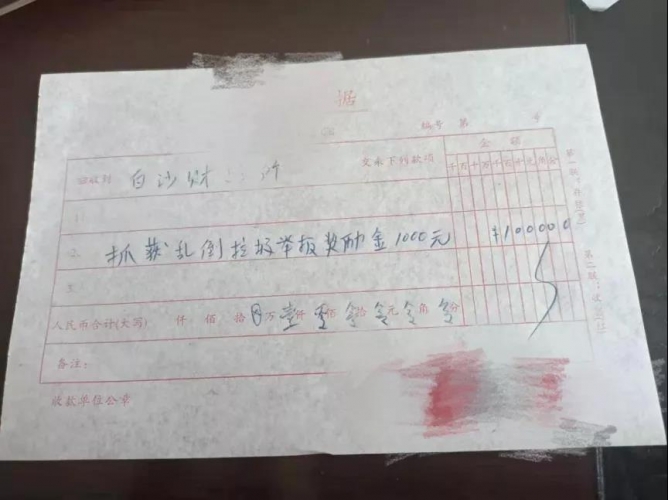 据
编号 第 号
金额
兹收到 白沙财 所 交来下列款项 千百十万千百十元角分
1.
2. 抓获乱倒垃圾举报奖励金1000元 ¥100000
3.
人民币合计(大写) 仟 佰 拾 万壹仟零佰令拾令元令角令分
备注：
收款单位公章
第一联：存根(黑)
第二联：收